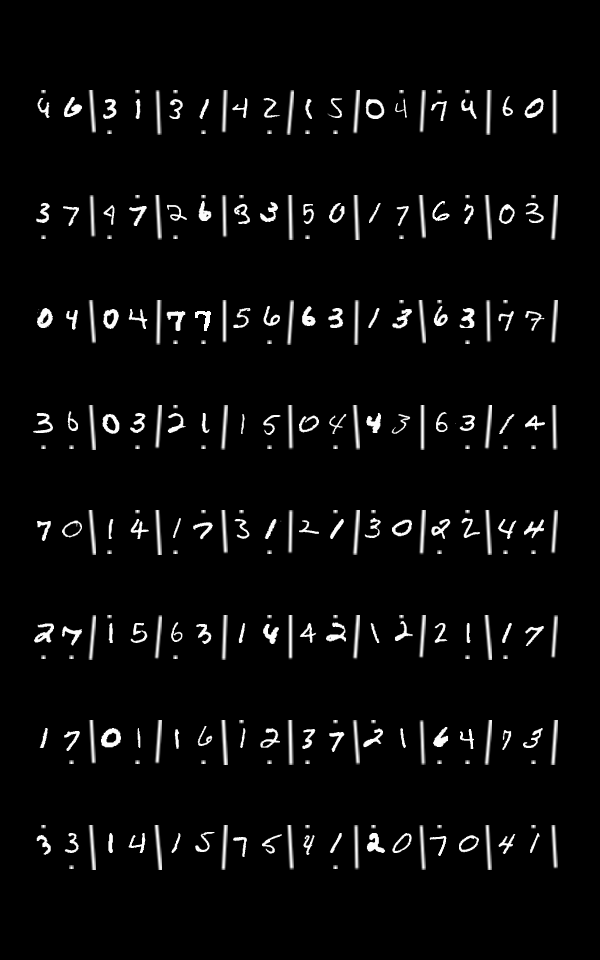 4 6 | 3 1 | 3 1 | 4 2 | 1 5 | 0 4 | 7 4 | 6 0 |
3 7 | 4 7 | 2 6 | 3 3 | 5 0 | 1 7 | 6 7 | 0 3 |
0 4 | 0 4 | 7 7 | 5 6 | 6 3 | 1 3 | 6 3 | 7 7 |
3 6 | 0 3 | 2 1 | 1 5 | 0 4 | 4 3 | 6 3 | 1 4 |
7 0 | 1 4 | 1 7 | 3 1 | 2 1 | 3 0 | 2 2 | 4 4 |
2 7 | 1 5 | 6 3 | 1 4 | 4 2 | 1 2 | 2 1 | 1 7 |
1 7 | 0 1 | 1 6 | 1 2 | 3 7 | 2 1 | 6 4 | 7 3 |
3 3 | 1 4 | 1 5 | 7 5 | 4 1 | 2 0 | 7 0 | 4 1 |